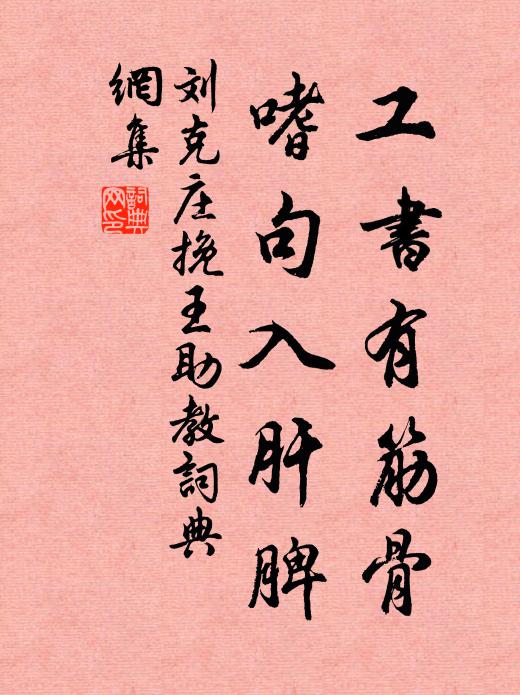 工書有筋骨
嗜句入肝脾
刘克庄挽王助教詞典
網集
詞典
网印